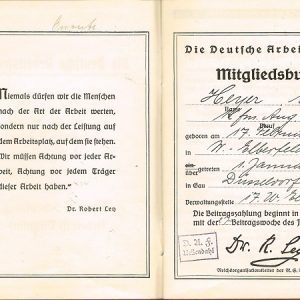 Niemals dürfen wir die Menschen
nach der Art der Arbeit werten,
sondern nur nach der Leistung auf
dem Arbeitsplatz, auf dem sie stehen.
Wir müssen Achtung vor jeder Ar-
beit, Achtung vor jedem Träger
dieser Arbeit haben."
Dr. Robert Ley
Die Deutsche Arbei
Mitgliedsbu
Heyer
Name
Aug.
Beruf
geboren am 17. Februar
in W. Elberfeld
getreten 1. Januar
in Gau Düsseldorf
Verwaltungsstelle 17. W. El
Die Beitragszahlung beginnt in
mit der Beitragswoche des J
D. A. F.
Dr. R. Ley
Reichsorganisationsleiter der N.S.